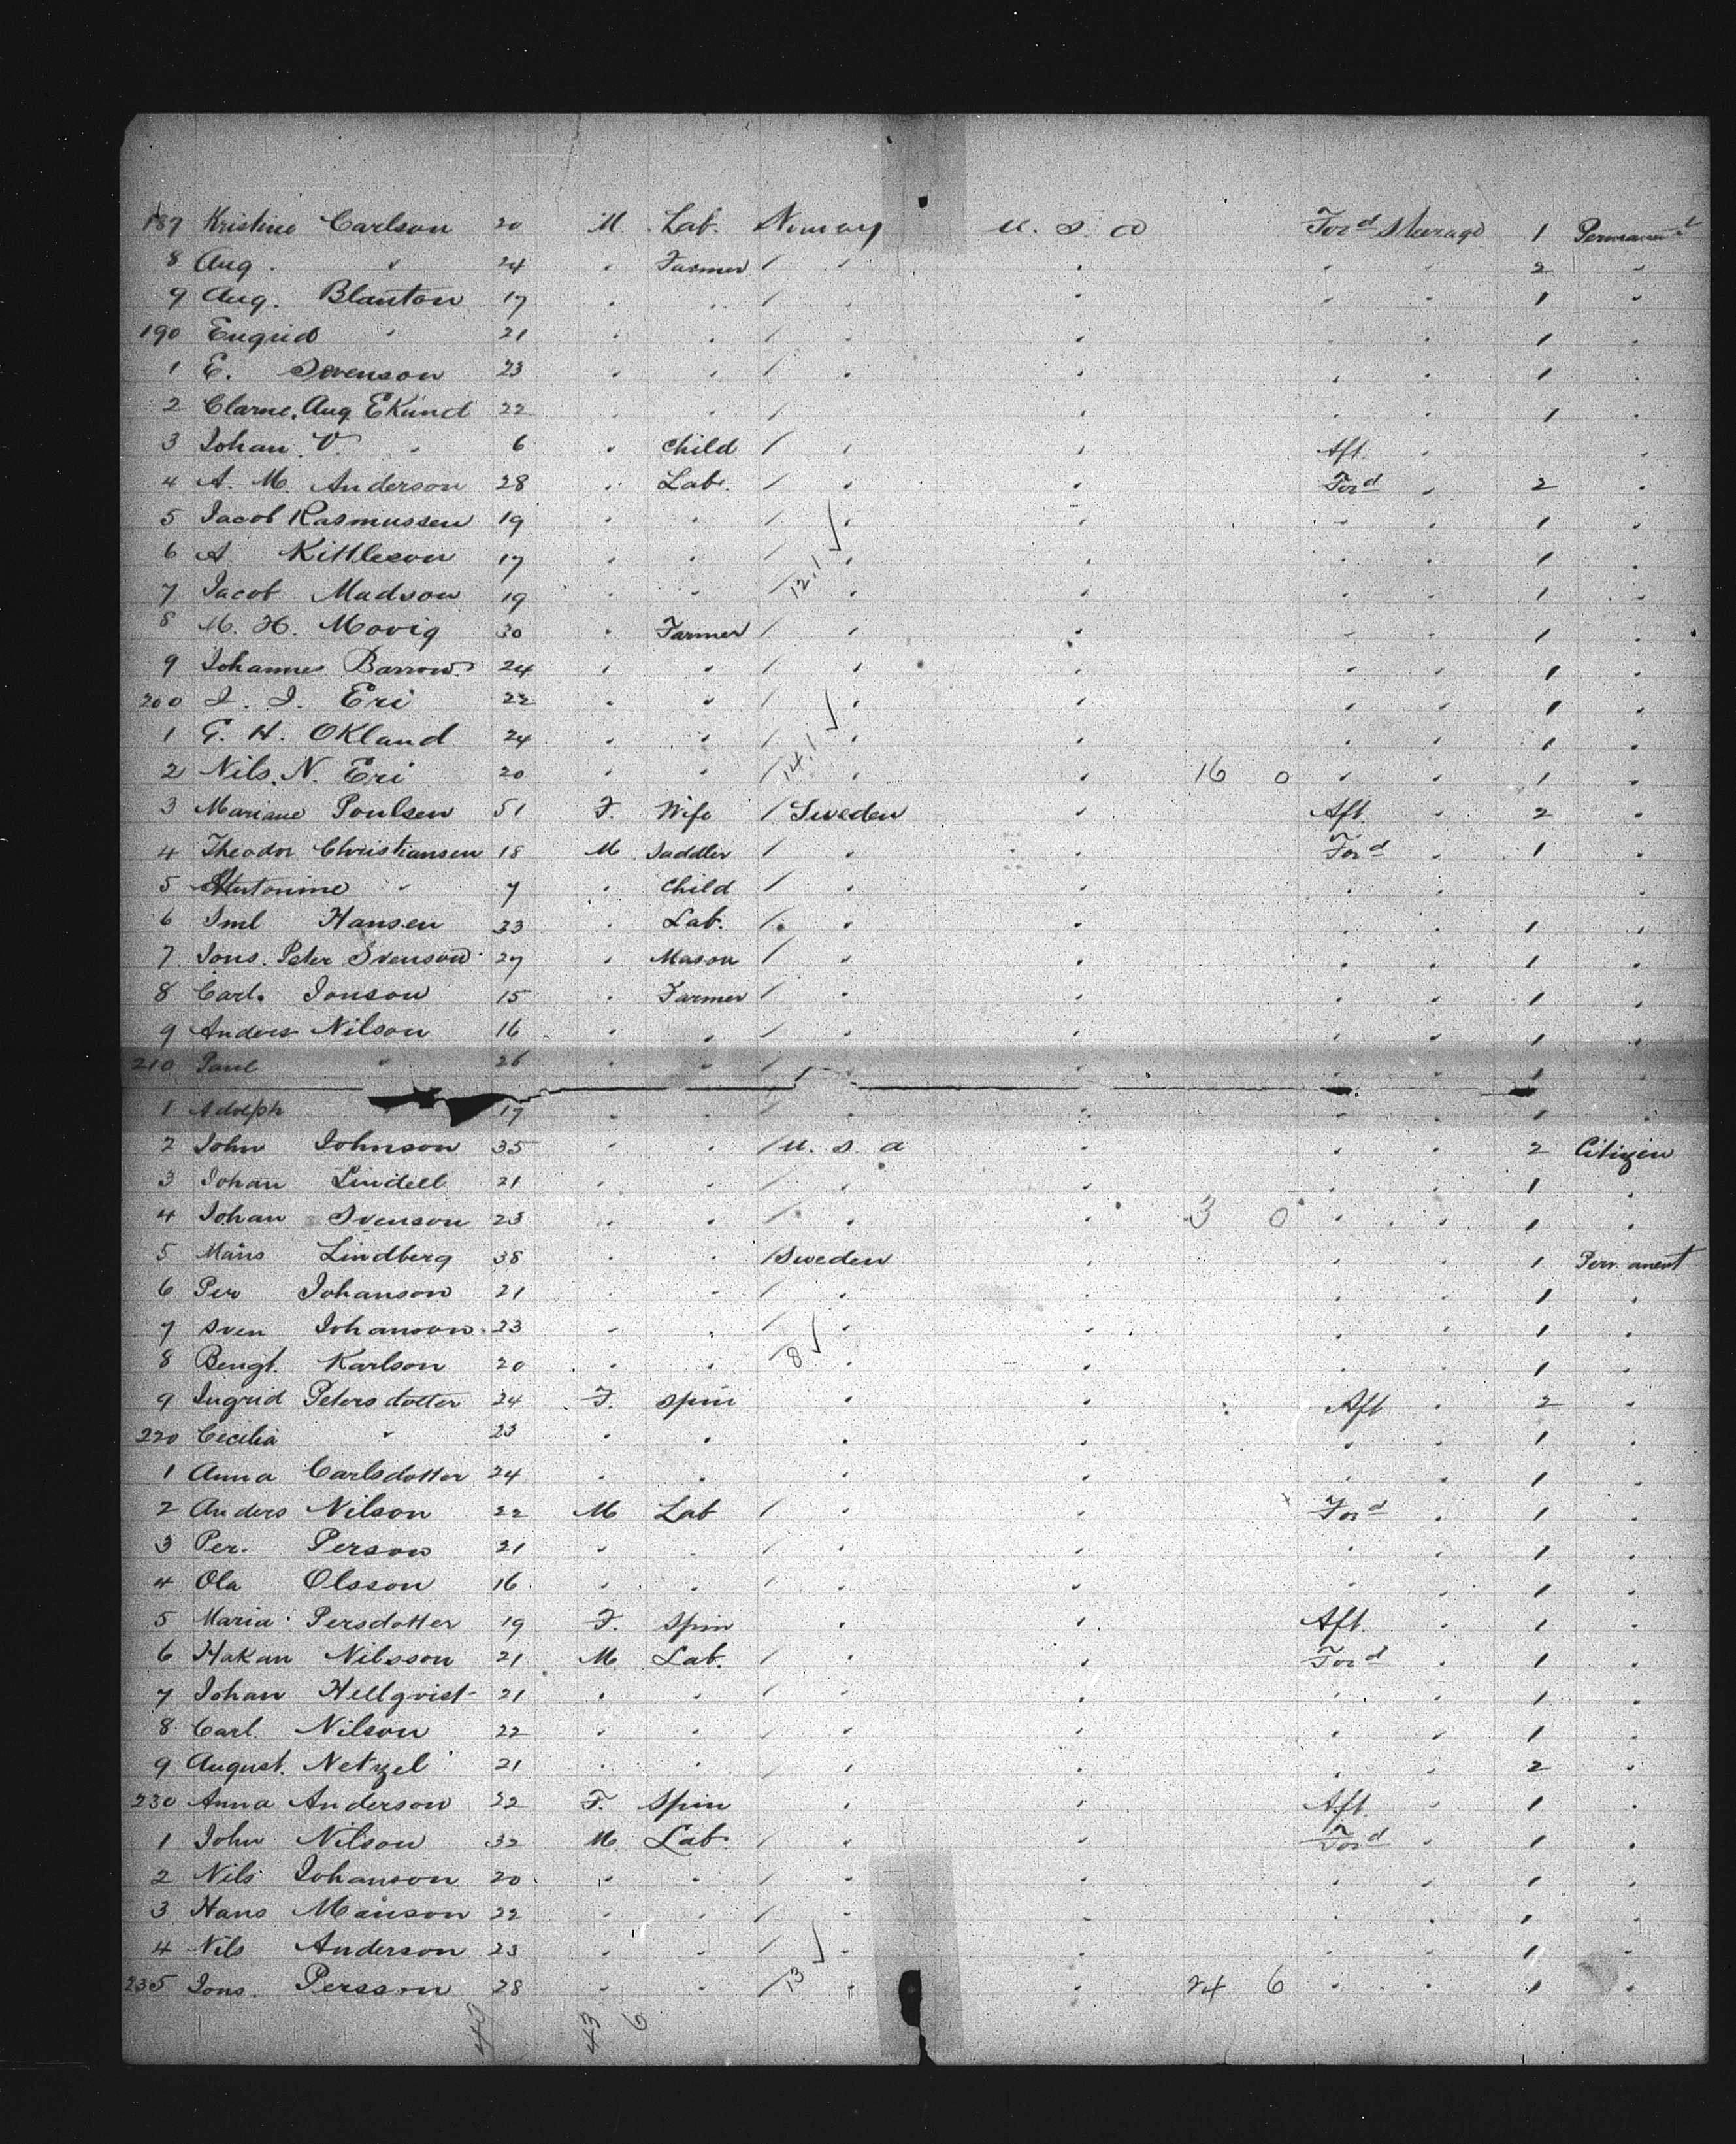 187 Kristine Carlson 20 M. Lab. Norway U. S. A Ford Steerage 1 Permanent
8 Aug. " 24 " Farmer / " " " " 2 "
9 Aug. Blanton 17 " " / " " " " 1 "
190 Engrid " 21 " " / " " " " 1 "
1 E. Svenson 23 " " / " " " " 1 "
2 Clarne. Aug Ekund 22 " " / " " " " 1 "
3 Johan V. " 6 " Child / " " Aft. " "
4 A. M. Anderson 28 " Lab. / " " Ford " 2 "
5 Jacob Rasmussen 19 " " / " " " " 1 "
6 A Kittleson 17 " " / " " " " 1 "
7 Jacob Madson 19 " " / 12.1 " " " " 1 "
8 M. H. Movig 30 " Farmer / " " " " 1 "
9 Johannes Barrow 24 " " / " " " " 1 "
200 I. I. Eri 22 " " / " " " " 1 "
1 G. H. Okland 24 " " / " " " " 1 "
2 Nils. N. Eri 20 " " / 14.1 " " 16 0 " " 1 "
3 Mariane Poulsen 51 F. Wife / Sweden " Aft. " 2 "
4 Theodor Christiansen 18 M. Saddler / " " Ford " 1 "
5 " 7 " Child / " " " " "
6 Hansen 33 " Lab. / " " " " 1 "
7 Jons. Peter Svenson 27 " Mason / " " " " 1 "
8 Carl. Jonson 15 " Farmer / " " " " 1 "
9 Anders Nilson 16 " " / " " " " 1 "
210 Paul " 26 " " / " " " " 1 "
1 Adolph 17 " " / " " " " 1 "
2 John Johnson 35 " " / U. S. A " " " 2 Citizen
3 Johan Lindell 21 " " / " " " " 1 "
4 Johan Svenson 23 " " / " " 3 0 " " 1 "
5 Måns Lindberg 38 " " / Sweden " " " 1 Permanent
6 Per Johanson 21 " " / " " " " 1 "
7 Sven Johanson 23 " " / " " " " 1 "
8 Bengt. Karlson 20 " " / 8 " " " " 1 "
9 Ingrid Petersdotter 24 F. Spin " " Aft " 2 "
220 Cecilia " 23 " " " " " " 1 "
1 Anna Carlsdotter 24 " " " " " " 1 "
2 Anders Nilson 22 M Lab / " " Ford " 1 "
3 Per. Person 21 " " / " " " " 1 "
4 Ola Olsson 16 " " / " " " " 1 "
5 Maria Persdotter 19 F. Spin " " Aft. " 1 "
6 Hakan Nilsson 21 M Lab. / " " Ford " 1 "
7 Johan Hellqvist 21 " " / " " " " 1 "
8 Carl. Nilson 22 " " / " " " " 1 "
9 August. Netzel 21 " " / " " " " 2 "
230 Anna Anderson 22 F. Spin " " Aft. " 1 "
1 John Nilson 32 M Lab / " " Ford " 1 "
2 Nils Johanson 20 " " / " " " " 1 "
3 Hans Månson 22 " " / " " " " 1 "
4 Nils Anderson 23 " " / " " " " 1 "
235 Jons. Persson 28 " " / 13 " " 24 6 " " 1 "
49 43 6